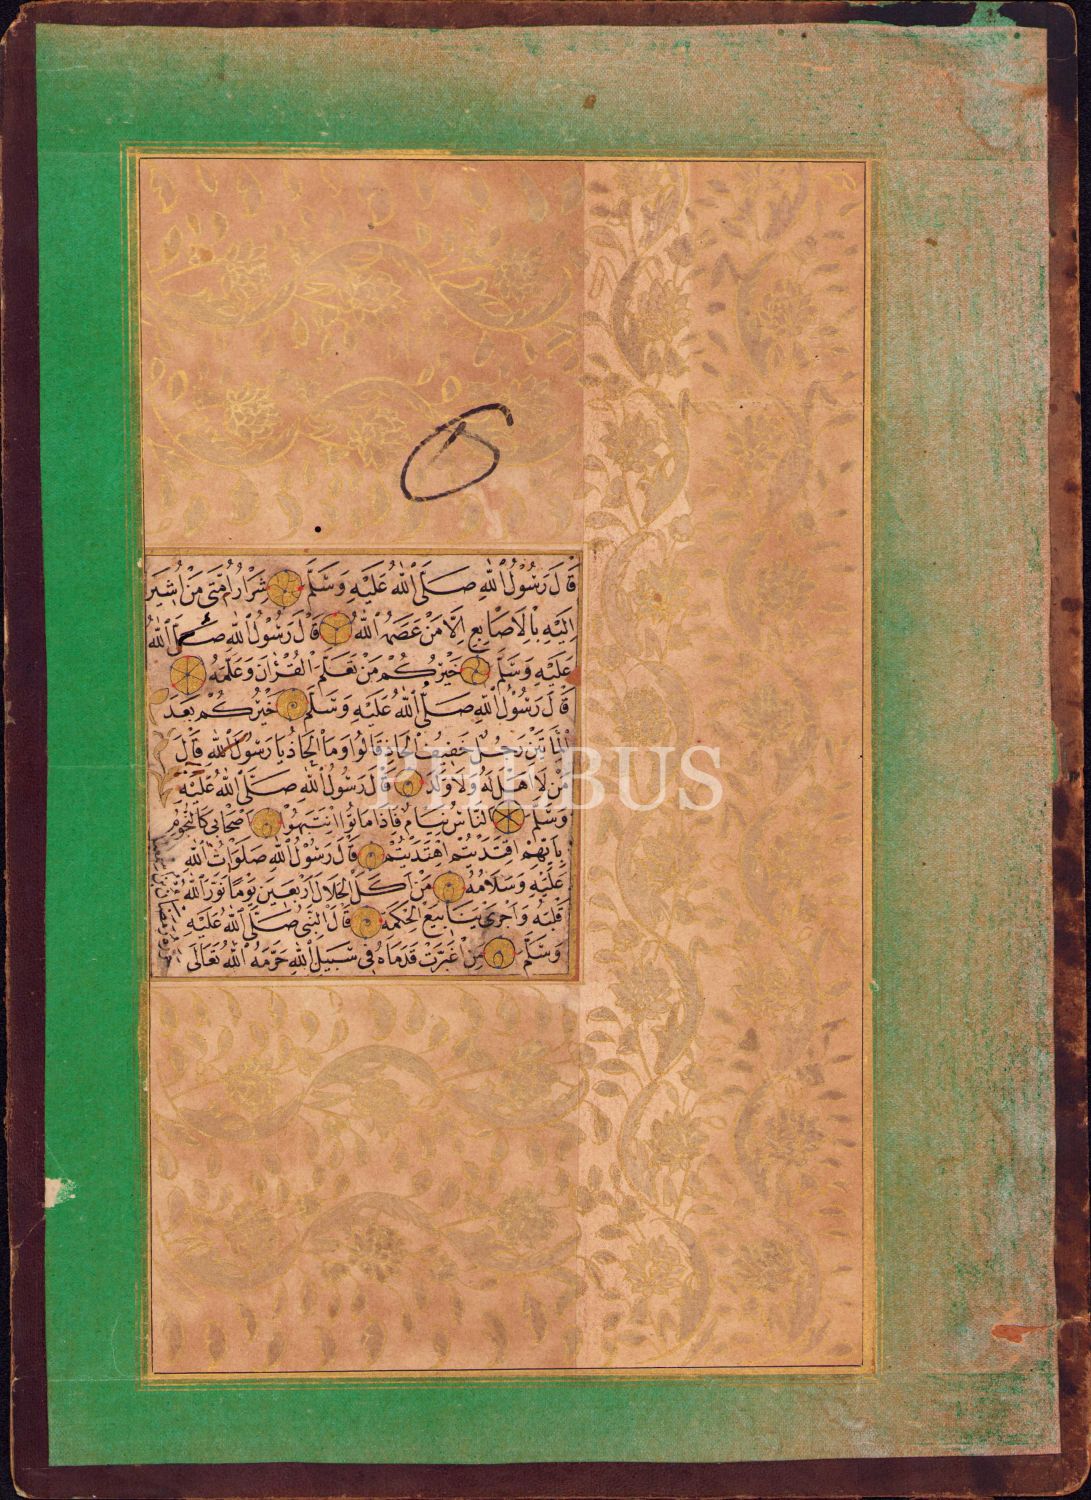 قَالَ رَسُولُ اللهِ صَلَّى اللهُ عَلَيْهِ وَسَلَّمَ شِرَارُ اُمَّتِى مَنْ اُشِيرَ
اِلَيْهِ بِالْاَصَابِعِ اِلَّا مَنْ عَصَمَهُ اللهُ قَالَ رَسُولُ اللهِ صَلَّى اللهُ
عَلَيْهِ وَسَلَّمَ خَيْرُكُمْ مَنْ تَعَلَّمَ الْقُرْاٰنَ وَعَلَّمَهُ
قَالَ رَسُولُ اللهِ صَلَّى اللهُ عَلَيْهِ وَسَلَّمَ خَيْرُكُمْ بَعْدَ
الْمِأَتَيْنِ رَجُلٌ خَفِيفُ الْحَاذِ قَالُوا وَمَا الْحَاذُ يَا رَسُولَ اللهِ قَالَ
مَنْ لَا اَهْلَ لَهُ وَلَا وَلَدَ قَالَ رَسُولُ اللهِ صَلَّى اللهُ عَلَيْهِ
PHEBUS
وَسَلَّمَ النَّاسُ نِيَامٌ فَاِذَا مَاتُوا انْتَبَهُوا اَصْحَابِى كَالنُّجُومِ
بِاَيِّهِمْ اقْتَدَيْتُمْ اهْتَدَيْتُمْ قَالَ رَسُولُ اللهِ صَلَوَاتُ اللهِ
عَلَيْهِ وَسَلَامُهُ مَنْ اَكَلَ الْحَلَالَ اَرْبَعِينَ يَوْمًا نَوَّرَ اللهُ
قَلْبَهُ وَاَجْرٰى يَنَابِيعَ الْحِكْمَةِ قَالَ النَّبِىُّ صَلَّى اللهُ عَلَيْهِ
وَسَلَّمَ مَنِ اغْبَرَّتْ قَدَمَاهُ فِى سَبِيلِ اللهِ حَرَّمَهُ اللهُ تَعَالَى